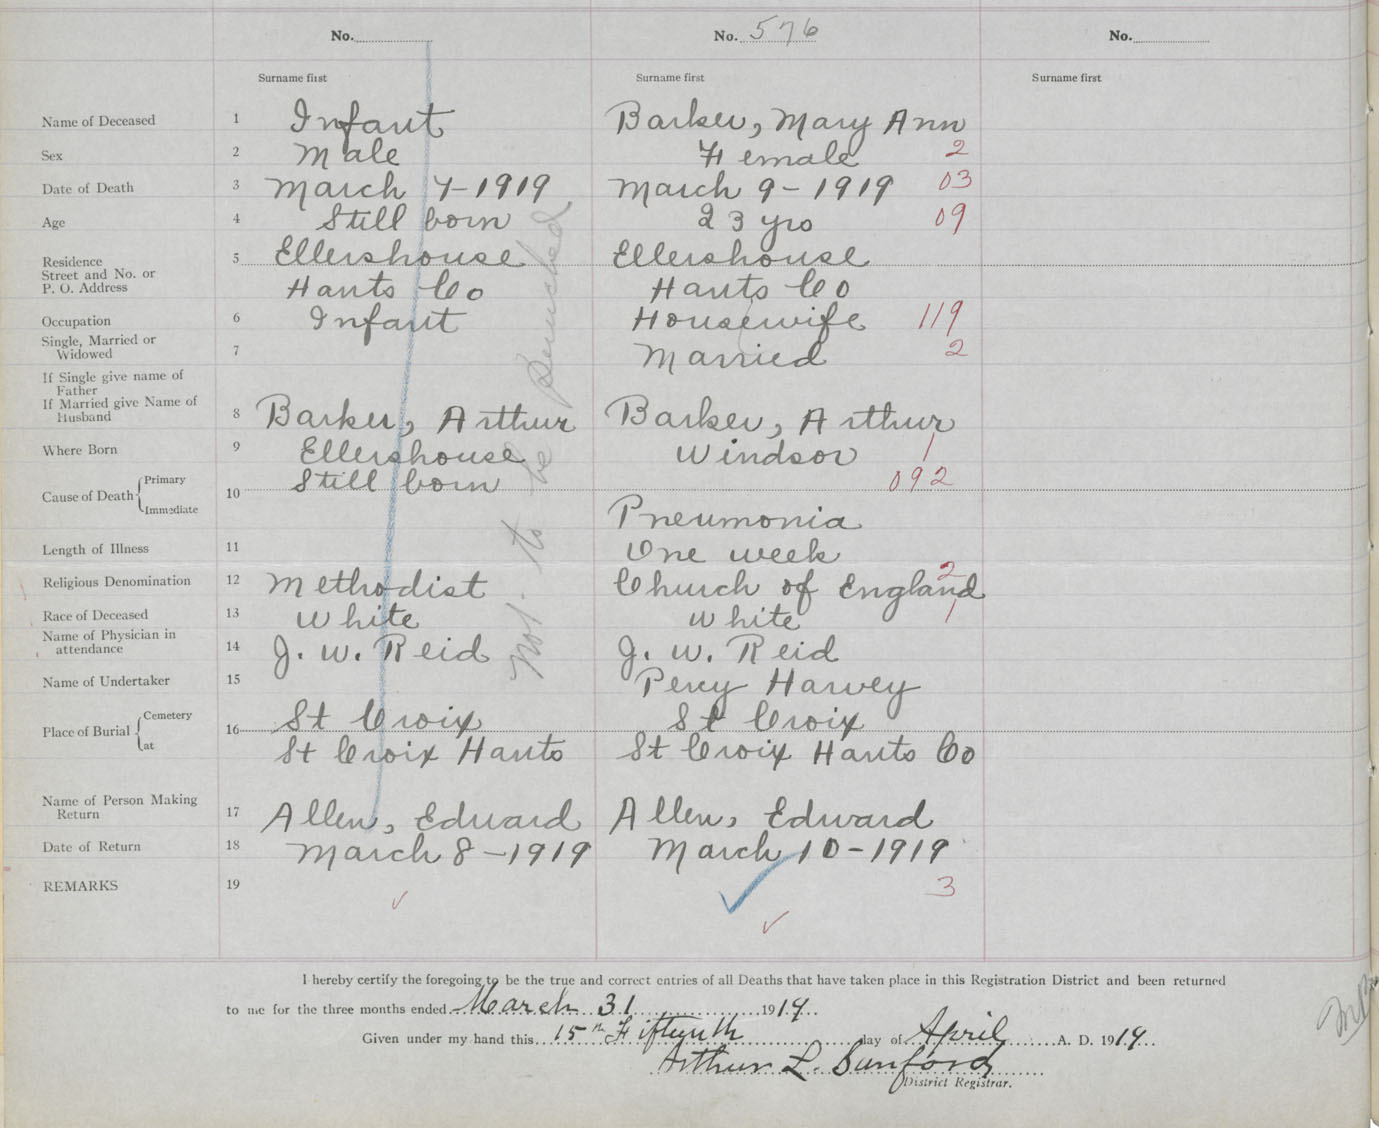 No. No. 576 No.
Surname first Surname first Surname first
Name of Deceased 1 Infant Barker, Mary Ann
Sex 2 Male Female 2
Date of Death 3 March 7-1919 March 9-1919 03
Age 4 Still born 23 yrs 09
Residence 5 Ellershouse Ellershouse
Street and No. or
P. O. Address Hants Co Hants Co
Occupation 6 Infant Housewife 119
Single, Married or
Widowed 7 Married 2
If Single give name of
Father
If Married give Name of
Husband 8 Barker, Arthur Barker, Arthur
Where Born 9 Ellershouse Windsor 1
Cause of Death Primary 10 Still born 092
Immediate Pneumonia
Length of Illness 11 One week
Religious Denomination 12 Methodist Church of England 2
Race of Deceased 13 White White 1
Name of Physician in
attendance 14 J. W. Reid J. W. Reid
Name of Undertaker 15 Percy Harvey
Place of Burial Cemetery 16 St Croix St Croix
at St Croix Hants St Croix Hants Co
Name of Person Making
Return 17 Allen, Edward Allen, Edward
Date of Return 18 March 8-1919 March 10-1919
REMARKS 19 3
Not to be Punched
I hereby certify the foregoing to be the true and correct entries of all Deaths that have taken place in this Registration District and been returned
to me for the three months ended March 31 1919
Given under my hand this 15th Fifteenth day of April A. D. 1919
Arthur L. Sanford
District Registrar.